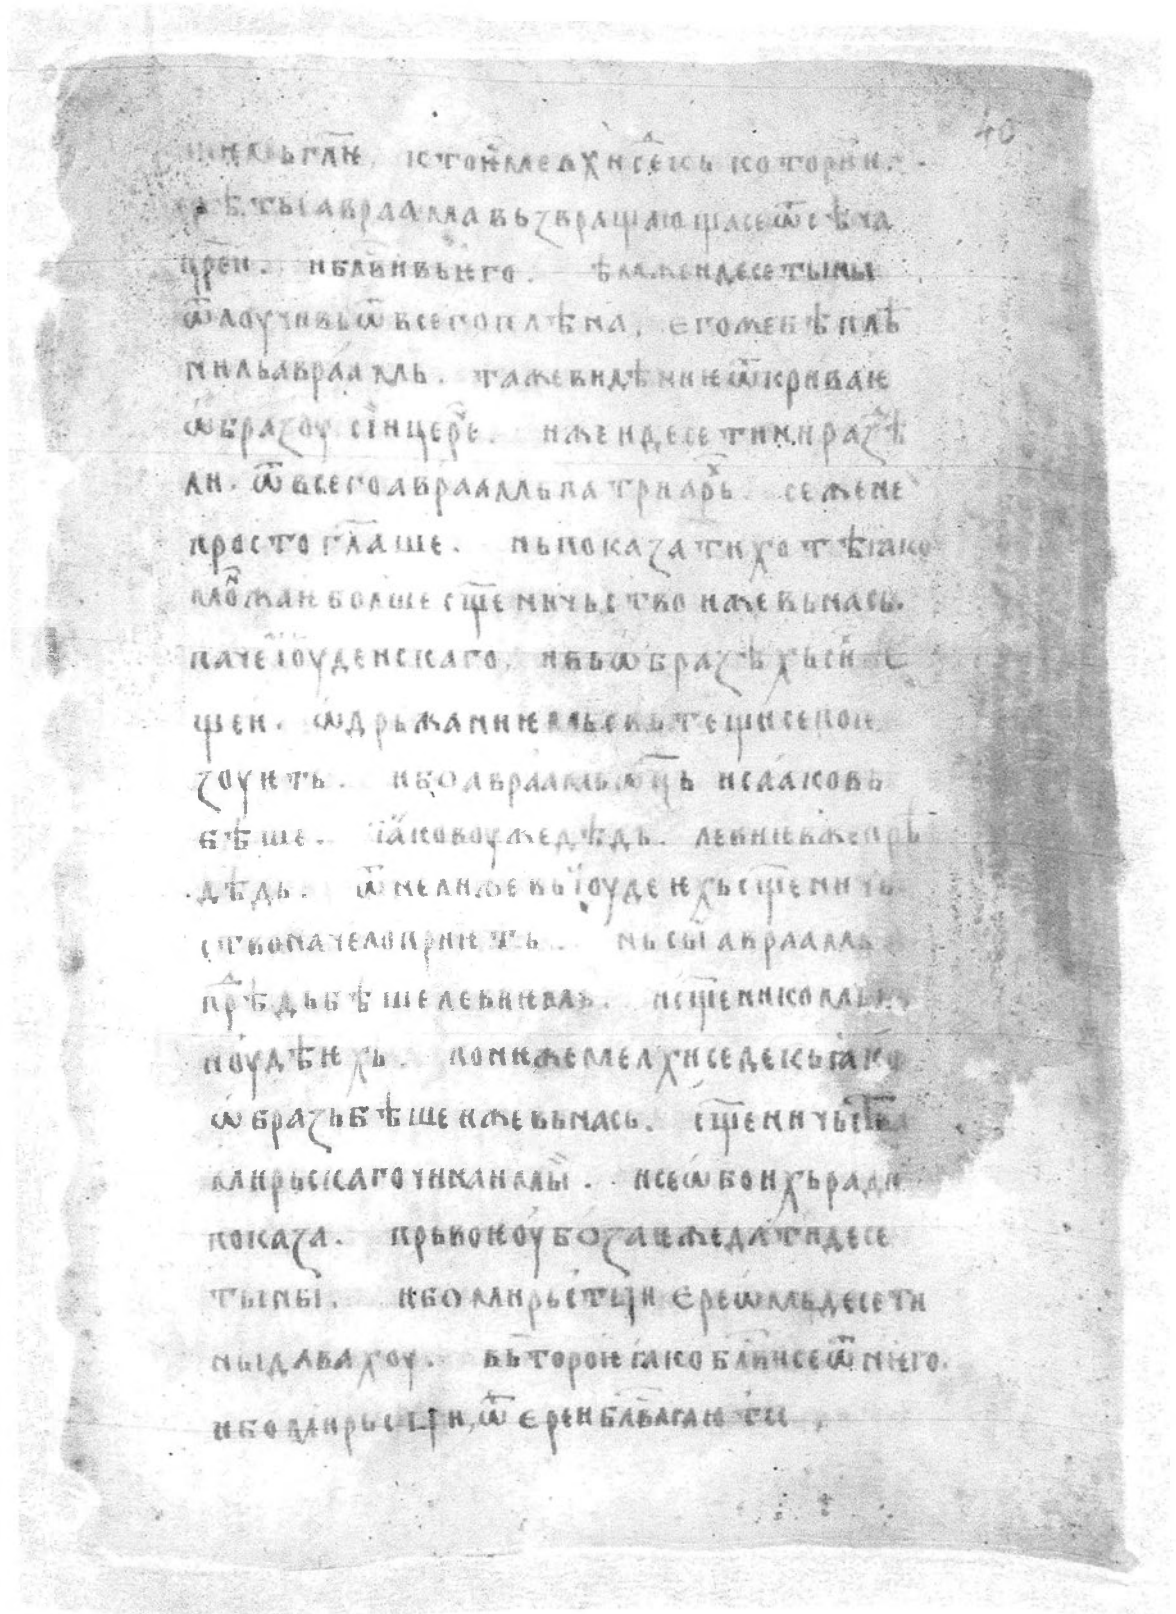 40
гл҃ѥ. кто ѥ мелхиседекь которїи.
срѣть авраама вьзвращающасе ѿ сѣча
цр҃еи. и блв҃ивь ѥго. ѣмꙋже и десетыны
ѿлоучивь ѿ всего плѣна, егоже бѣ плѣ
ниль авраамь. таже видѣниѥ ѿкриваѥ
ѡбразоу сїи цере. иже и десетини раздѣ
ли. ѿ всего авраамь патриархь. се же не
просто гл҃аше. нь показати хотѣ ꙗко
мнѡжаѥ болше сщ҃еничьство иже вь нась.
паче їоуденскаго. и вь ѡбразѣхь си
щеи. ѡдрьжаниѥ
зоуѥть. ибо авраамь ѿць исааковь
бѣше. їаковоу же дѣдь. левиѥв же прѣ
дѣдь. ѿ нелиже вь їоудеѥхь сщ҃еничь
ство начело приѥть. нь сы авраамь
прѣдь бѣше левиѥмь. и сщ҃еникомь
иоудѣѥхь. понѥже мелхиседекь ꙗко
ѡбразь бѣше иже вь нась. сщ҃еничьства
мирьскаго чи имаимы. и се ѡбоихь ради
показа. прьвоѥ оубо за ѥже дати десе
тыны. ибо мирьстїи ерѥѡмь десети
ны давахоу. вьтороѥ ꙗко блв҃исе ѿ нѥго.
ибо мирьстїи, ѿ ереи блв҃лгаютсе,